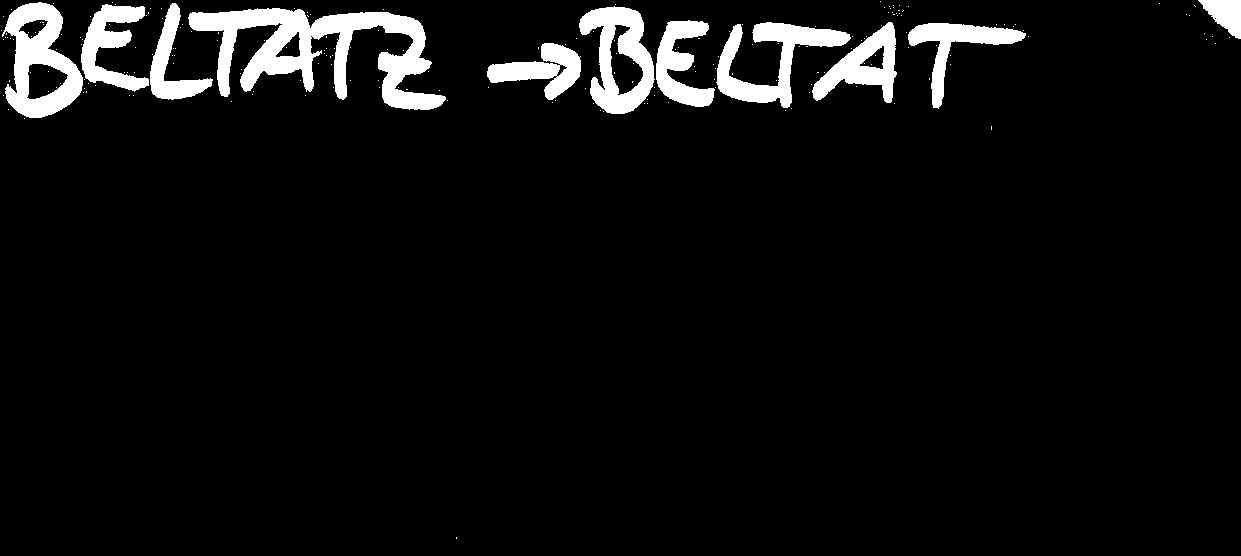 BELTATZ → BELTAT